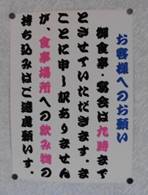 お客様へのお願い
御食事・宴会は九時まで
とさせていただきます。
ことに申し訳ありません
が、食事場所への飲み物の
持ち込みはご遠慮願います。